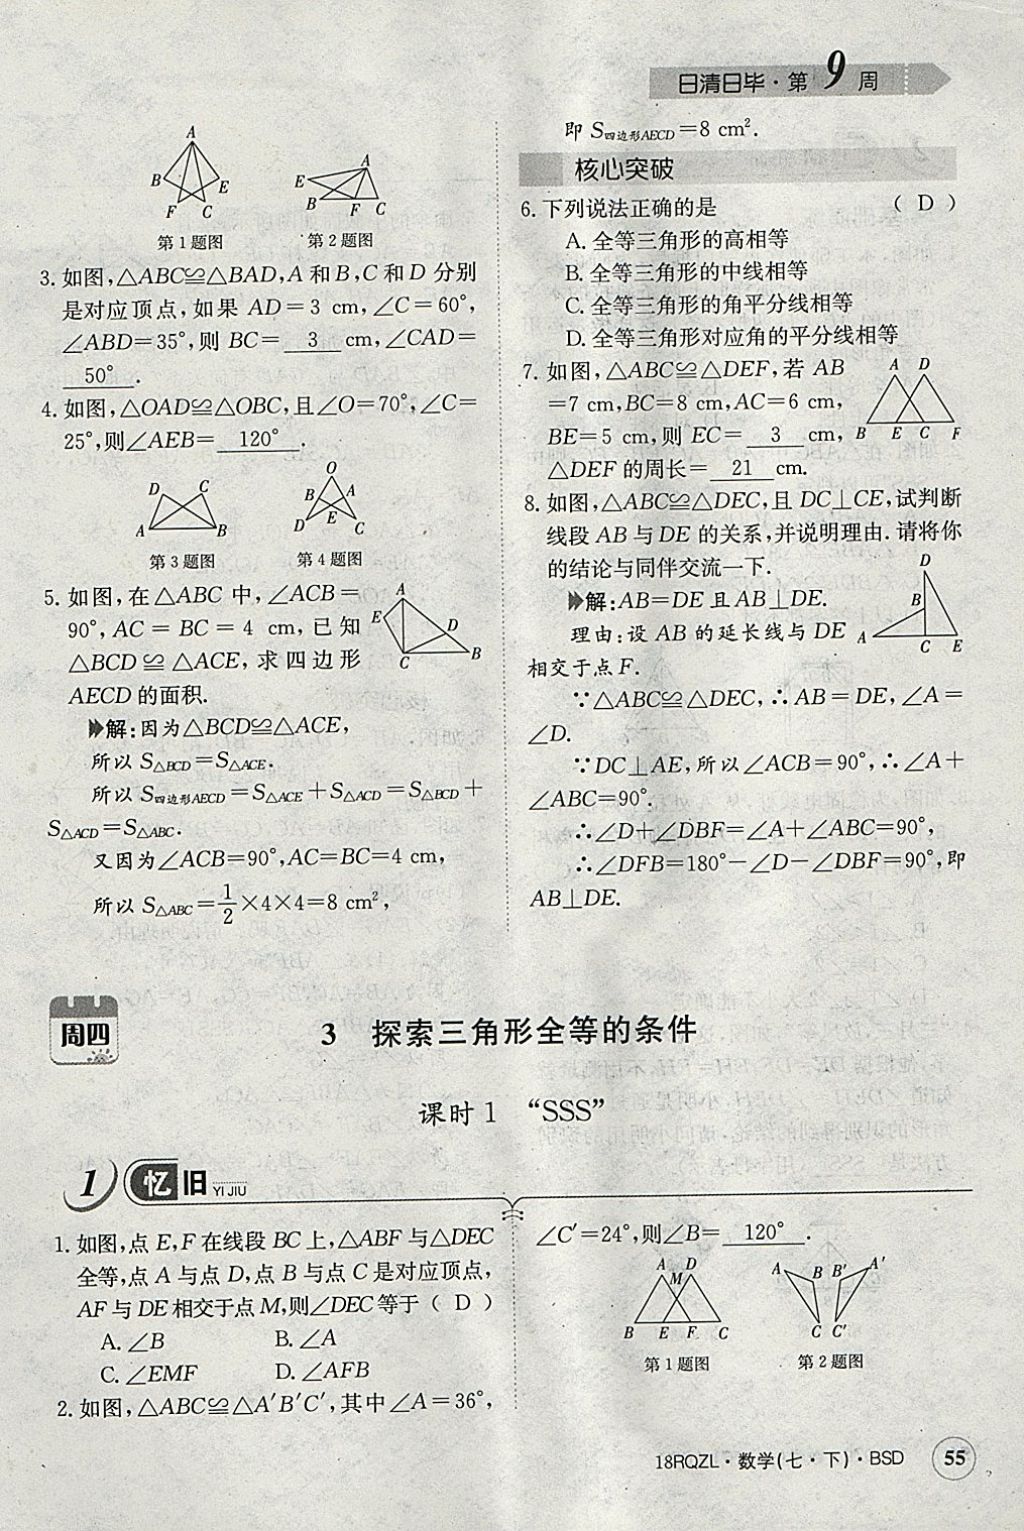 日清日毕·第9周
A
B
E
F
C
第1题图
A
E
B
F
C
第2题图
3. 如图,△ABC≌△BAD,A和B,C和D分别
是对应顶点,如果AD=3 cm,∠C=60°,
∠ABD=35°,则BC= 3 cm,∠CAD=
50° .
4. 如图,△OAD≌△OBC,且∠O=70°,∠C=
25°,则∠AEB= 120° .
D
C
A
B
第3题图
O
B
A
D
E
C
第4题图
5. 如图,在△ABC中,∠ACB=
90°,AC=BC=4 cm,已知
△BCD≌△ACE,求四边形
AECD的面积.
A
E
D
C
B
解:因为△BCD≌△ACE,
所以S△BCD=S△ACE.
所以S四边形AECD=S△ACE+S△ACD=S△BCD+
S△ACD=S△ABC.
又因为∠ACB=90°,AC=BC=4 cm,
所以S△ABC=1/2×4×4=8 cm²,
即S四边形AECD=8 cm².
核心突破
6. 下列说法正确的是 ( D )
A. 全等三角形的高相等
B. 全等三角形的中线相等
C. 全等三角形的角平分线相等
D. 全等三角形对应角的平分线相等
7. 如图,△ABC≌△DEF,若AB
=7 cm,BC=8 cm,AC=6 cm,
BE=5 cm,则EC= 3 cm,
△DEF的周长= 21 cm.
A D
B E C F
8. 如图,△ABC≌△DEC,且DC⊥CE,试判断
线段AB与DE的关系,并说明理由.请将你
的结论与同伴交流一下.
解:AB=DE且AB⊥DE.
理由:设AB的延长线与DE
相交于点F.
D
B
A
C E
∵△ABC≌△DEC,∴AB=DE,∠A=
∠D.
∵DC⊥AE,所以∠ACB=90°,∴∠A+
∠ABC=90°.
∴∠D+∠DBF=∠A+∠ABC=90°,
∴∠DFB=180°-∠D-∠DBF=90°,即
AB⊥DE.
周四
3 探索三角形全等的条件
课时1 “SSS”
1 忆旧 YI JIU
1. 如图,点E,F在线段BC上,△ABF与△DEC
全等,点A与点D,点B与点C是对应顶点,
AF与DE相交于点M,则∠DEC等于( D )
A. ∠B B. ∠A
C. ∠EMF D. ∠AFB
2. 如图,△ABC≌△A′B′C′,其中∠A=36°,
∠C′=24°,则∠B= 120° .
A D
M
B E F C
第1题图
A B B′ A′
C C′
第2题图
18RQZL·数学(七·下)·BSD 55